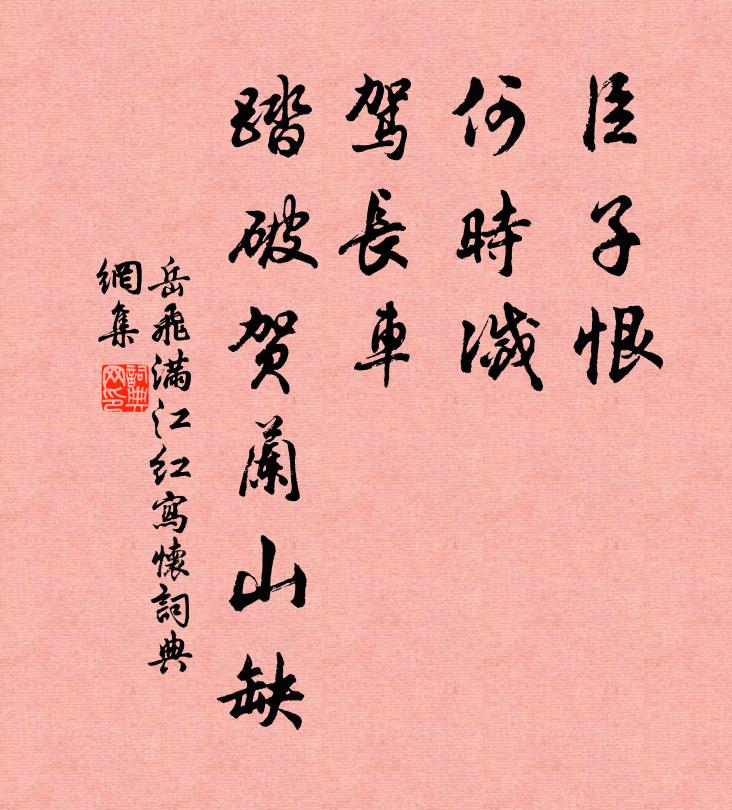 臣子恨
何時滅
駕長車
踏破贺蘭山缺
岳飛满江红寫懷詞典
網集
詞典
网印